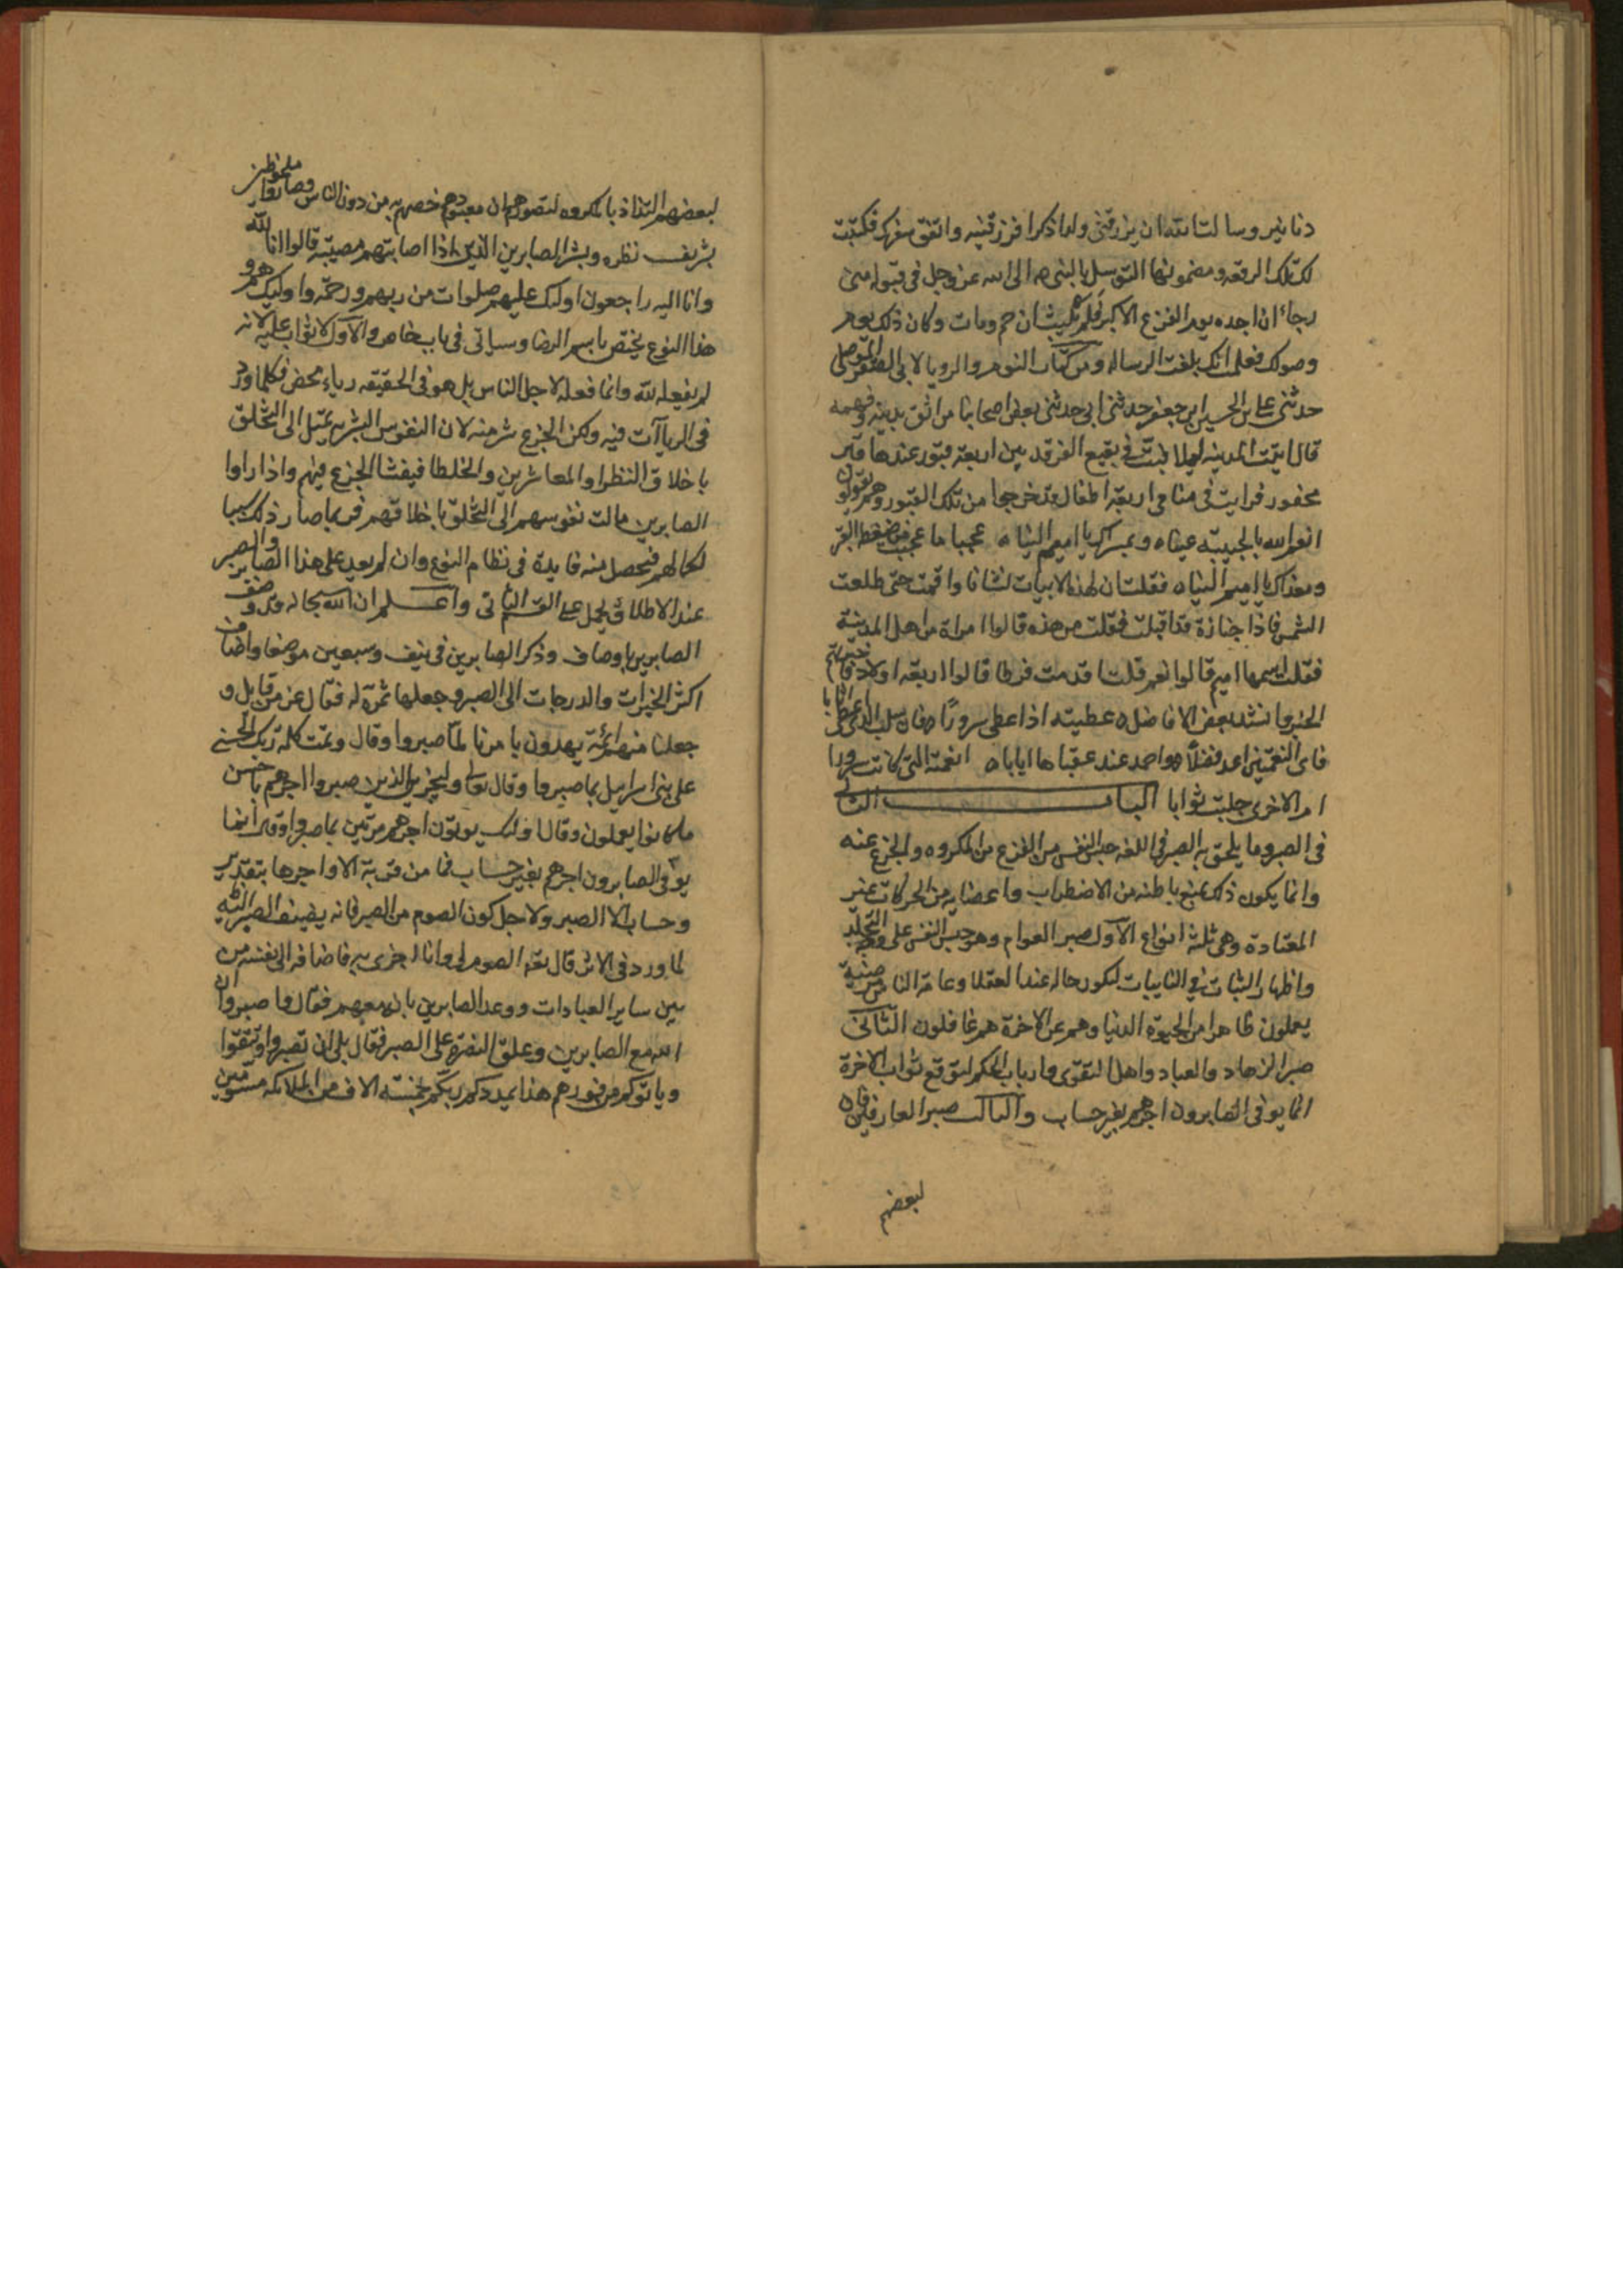 دنانير وسالت الله ان يرزقني ولدا ذكرا فرزقنيه واتفق سفرك فكتبت
لك تلك الرقعه ومضمونها التوسل بالنبي ص الى الله عز وجل في قبوله مني
رجاء ان اجده يوم الفزع الاكبر فلم يلبث ان حم ومات وكان ذلك يوم
وصولك فعلمت انك بلغت الرساله ومن كتاب النوم والرويا لابي الصقر الموصلي
حدثني علي بن الحسين ابن جعفر حدثني ابي حدثني بعض اصحابنا من اثق بدينه وفهمه
قال اتيت المدينه ليلا فبت في بقيع الغرقد بين اربعة قبور عندها قبر
محفور فرايت في منامي اربعة اطفال قد خرجوا من تلك القبور وهم يقولون
انعم الله بالحبيبة عينا ه وبمسراك يا اميم الينا ه عجبا ما عجبت من ضغطة القبر
ومغداك يا اميم الينا ه فقلت ان لهذه الابيات لشانا واقمت حتى طلعت
الشمس فاذا جنازة قد اقبلت فقلت من هذه قالوا امراة من اهل المدينة
فقلت اسمها اميم قالوا نعم قلت اقدمت فرطا قالوا اربعة اولاد فاخبرتهم
الخبر وانشد بعض الافاضل ه عطيته اذا اعطى سرورا ه فان سلب الذي اعطى اثابا
فاي النعمتين اعد فضلا ه واحمد عند عقباها ايابا ه انعمته التي كانت سرورا
ام الاخرى جلبت ثوابا الباب الثاني
في الصبر وما يلحق به الصبر في اللغه حبس النفس من الفزع من المكروه والجزع عنه
وانما يكون ذلك بمنع باطنه من الاضطراب واعضايه من الحركات غير
المعتادة وهي ثلثة انواع الاول صبر العوام وهو حبس النفس على وجه التجلد
واظهار الثبات في النايبات ليكون حاله عند العقلا وعامة الناس مرضية
يعلمون ظاهرا من الحيوة الدنيا وهم عن الاخرة هم غافلون الثاني
صبر الزهاد والعباد واهل التقوى وارباب الحكم لتوقع ثواب الاخرة
انما يوفى الصابرون اجرهم بغير حساب والثالث صبر العارفين فان
لبعضهم
لبعضهم التذاذ بالمكروه لتصورهم ان معبودهم خصهم به من دون الناس وصاروا ملحوظين
بشريف نظره وبشر الصابرين الذين اذا اصابتهم مصيبة قالوا انا لله
وانا اليه راجعون اولئك عليهم صلوات من ربهم ورحمة واولئك هم و
هذا النوع يختص باسم الرضا وسياتي في باب خاص والاول لا ثواب عليه لانه
لم يفعله لله وانما فعله لاجل الناس بل هو في الحقيقه رياء محض فكلما ورد
في الريا آت فيه ولكن الجزع شر منه لان النفوس البشريه تميل الى التخلق
باخلاق النظرا والمعاشرين والخلطا فيفشا الجزع فيهم واذا راوا
الصابرين مالت نفوسهم الى التخلق باخلاقهم فربما صار ذلك سببا
لكمالهم فيحصل منه فايدة في نظام النوع وان لم يعد على هذا الصابر والصبر
عند الاطلاق يحمل على القسم الثاني واعلم ان الله سبحانه قد وصف
الصابرين باوصاف وذكر الصابرين في نيف وسبعين موضعا واضاف
اكثر الخيرات والدرجات الى الصبر وجعلها ثمرة له فقال عز من قايل و
جعلنا منهم ائمة يهدون بامرنا لما صبروا وقال وتمت كلمة ربك الحسنى
على بنى اسراييل بما صبروا وقال تعالى وليجزين الذين صبروا اجرهم باحسن
ما كانوا يعملون وقال اولئك يوتون اجرهم مرتين بما صبروا وقال انما
يوفى الصابرون اجرهم بغير حساب فما من قربة الا واجرها بتقدير
وحساب الا الصبر ولاجل كون الصوم من الصبر فانه يضيف الصبر اليه
لما ورد في الاثر قال تعالى الصوم لي وانا اجزى به فاضافه الى نفسه من
بين ساير العبادات ووعد الصابرين بانه معهم فقال واصبروا ان
الله مع الصابرين وعلق النصرة على الصبر فقال بلى ان تصبروا وتتقوا
وياتوكم من فورهم هذا يمددكم ربكم بخمسة الاف من الملائكه مسومين